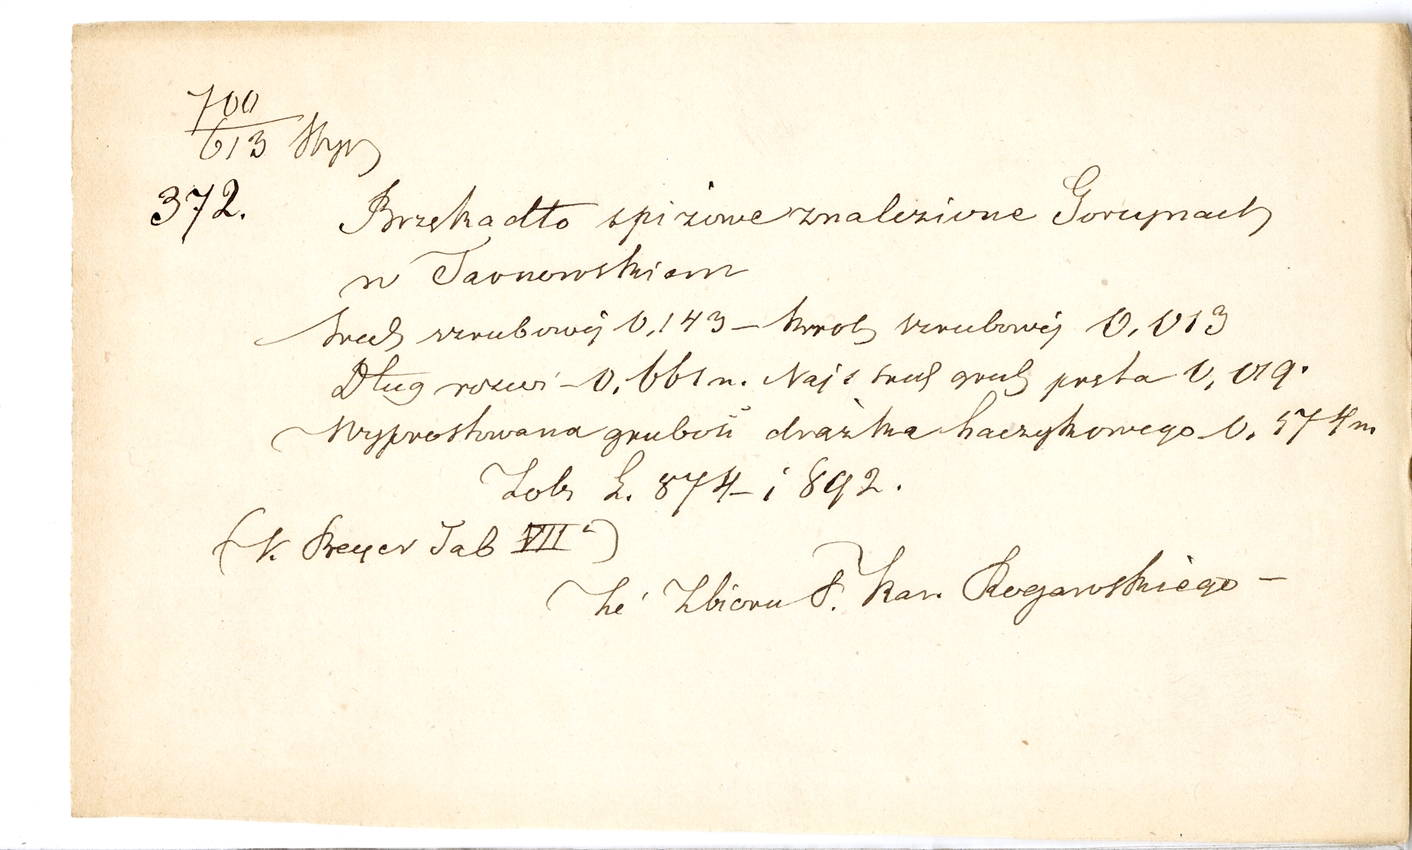 700
613
372. Brzękadło spiżowe znalezione Gorzynach
w Tarnowskiem
Śred szrubowéj 0,143 – szrubowéj 0,013
Dług rozwi – 0,661 m. Najs śred grub pręta 0,019.
Wyprostowana grubość drążka haczykowego 0,574 m
Zob L. 874 – i 892.
(v. Preyer Tab VII)
Ze Zbioru F. Kar. Rogawskiego –